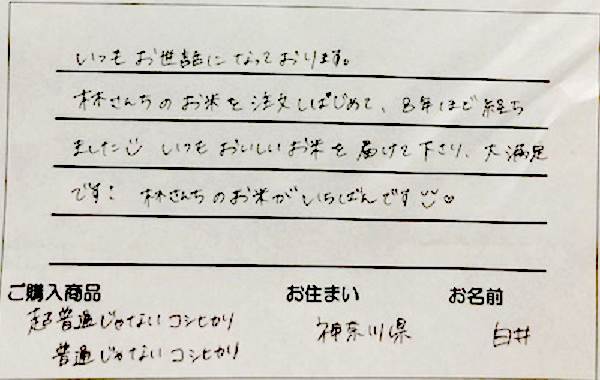 いつもお世話になっております。
林さんちのお米を注文しはじめて、8年ほど経ち
ました いつもおいしいお米を届けて下さり、大満足
です! 林さんちのお米がいちばんです
ご購入商品 お住まい お名前
超普通じゃないコシヒカリ 神奈川県 白井
普通じゃないコシヒカリ